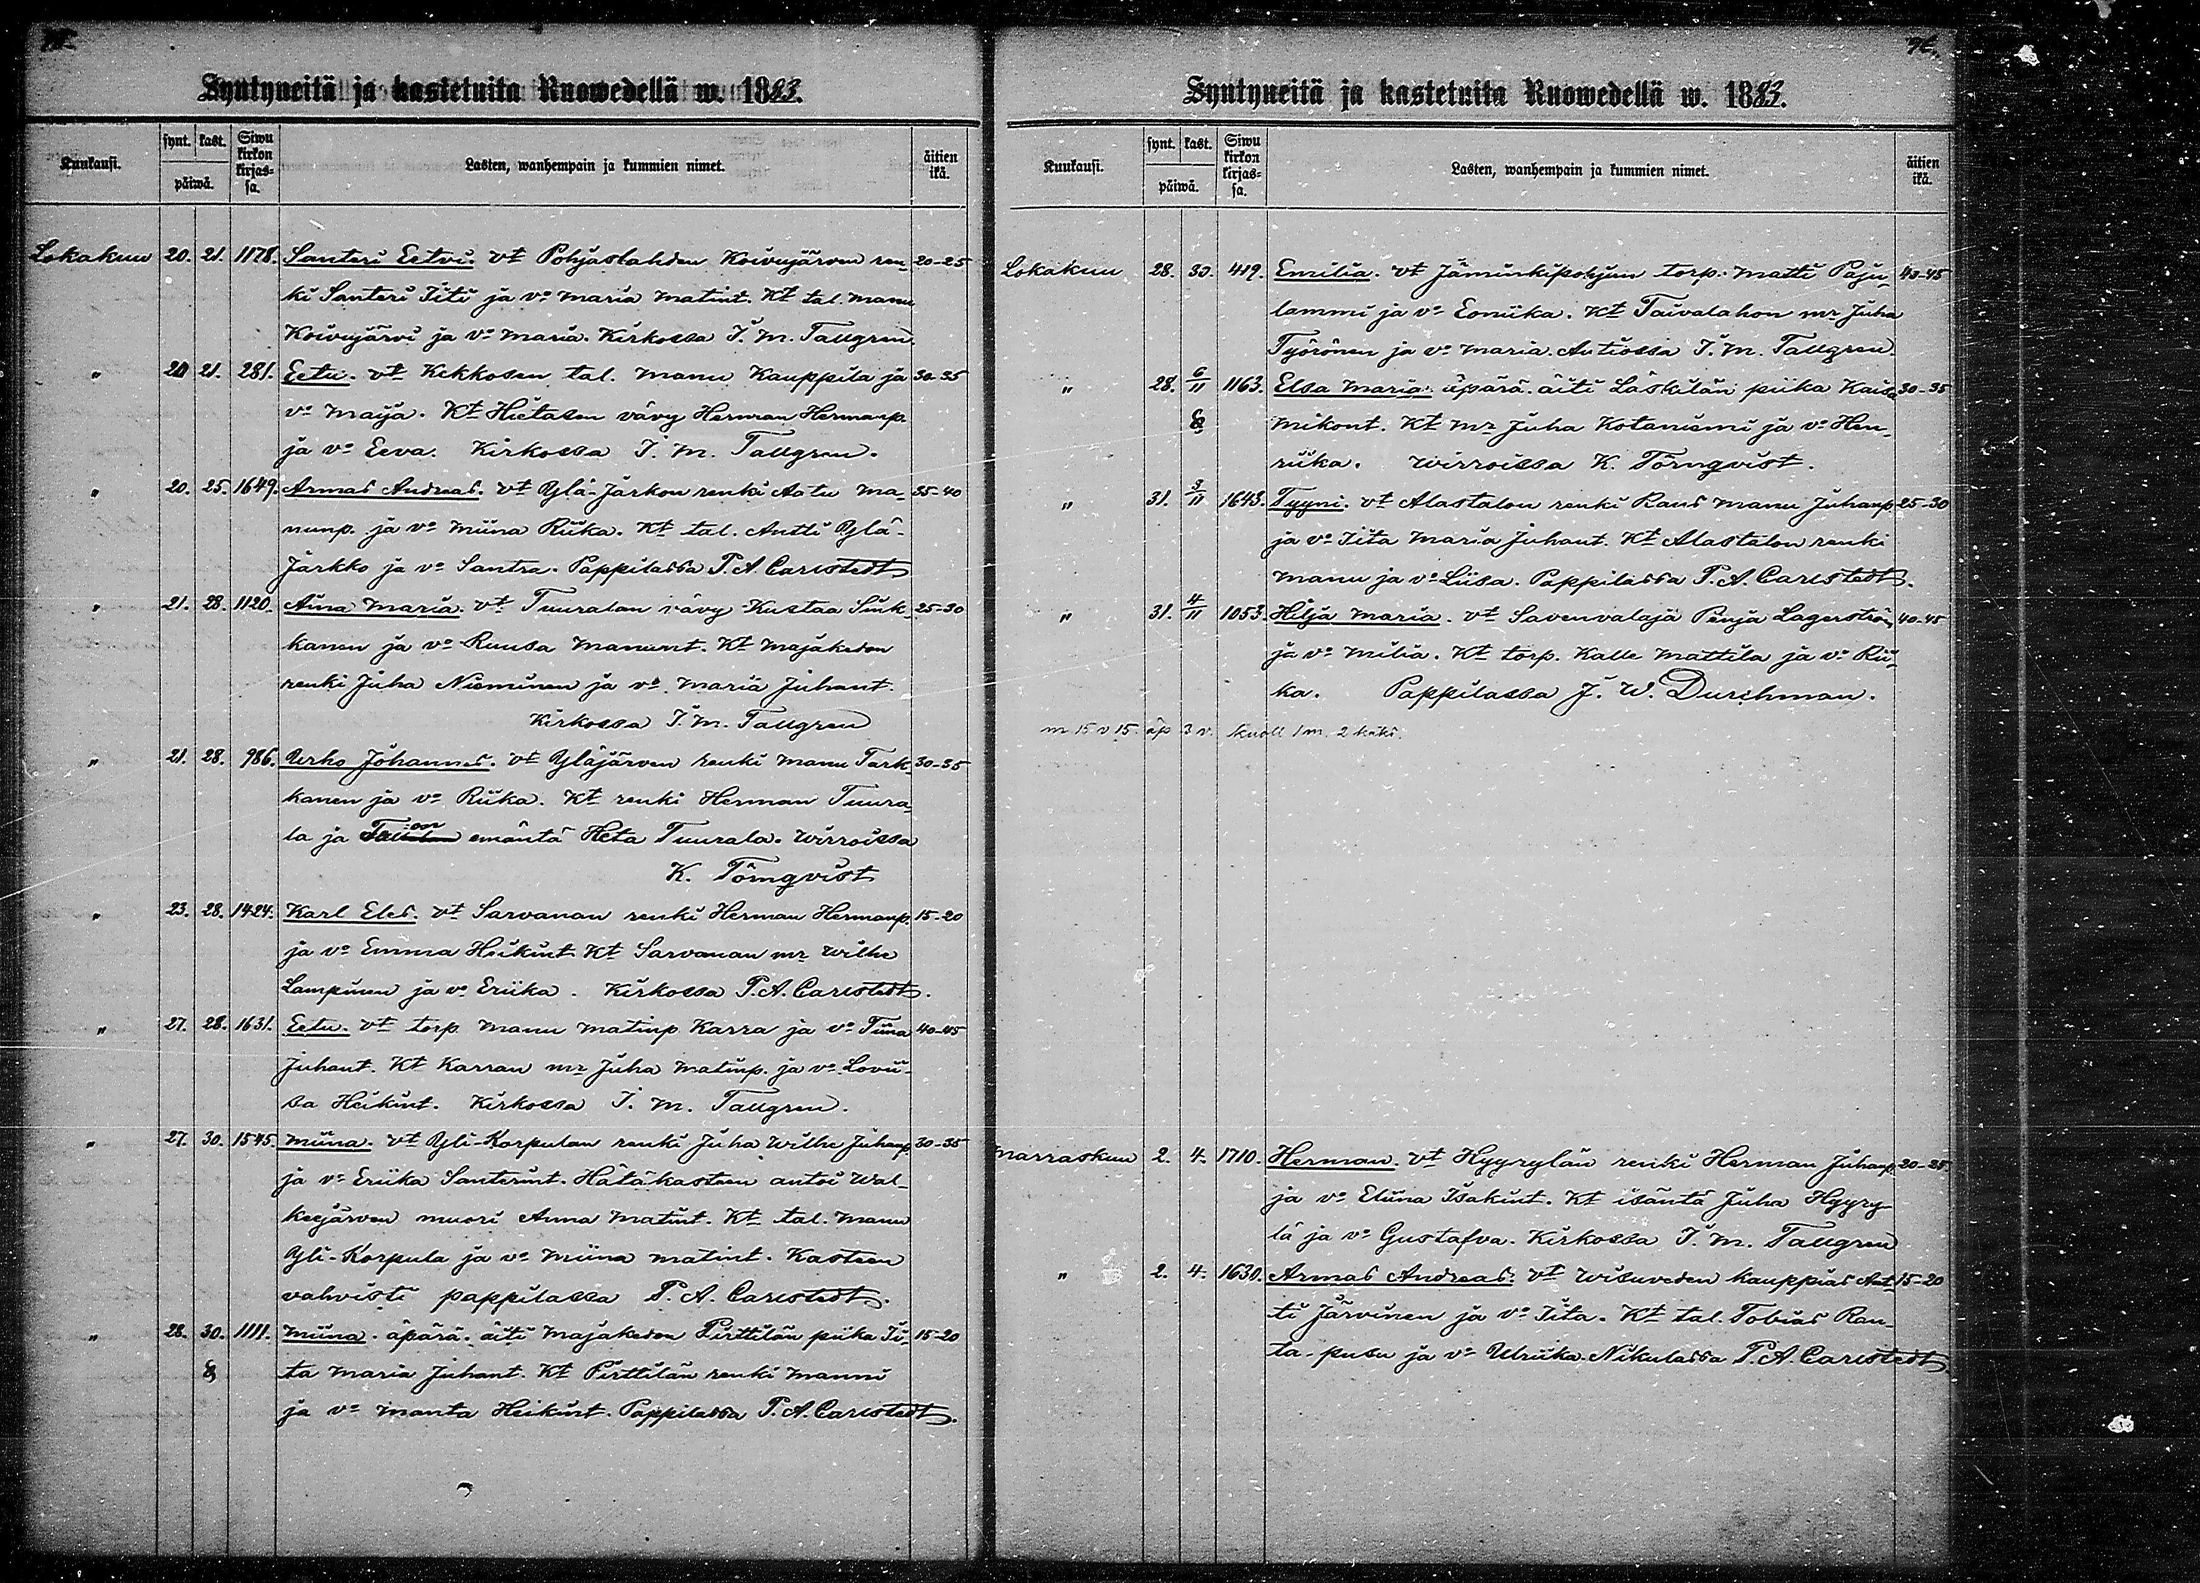 Syntyneitä ja kastetuita Ruowedellä w. 1883.
Kuukausi. synt. kast. päiwä. Siwu kirkon kirjas=sa. Lasten, wanhempain ja kummien nimet. äitien ikä.
Lokakuu 20. 21. 1178. Santeri Eetvi. vt Pohjaslahden Koivujärven ren- 20-25
ki Santeri Iiti ja vo Maria Matint. Kt tal. Manu
Koivujärvi ja vo Maria. Kirkossa J. M. Tallgren
" 20 21. 281. Eetu. vt Kekkosen tal. Manu Kauppila ja 30-35
vo Maija. Kt Hietasen vävy Herman Hermanp.
ja vo Eeva. Kirkossa J. M. Tallgren.
" 20. 25. 1649. Armas Andreas. vt Ylä-Järkon renki Aatu Ma- 35-40
nunp. ja vo Miina Riika. Kt tal. Antti Ylä-
Järkko ja vo Santra. Pappilassa P. A. Carlstedt
" 21. 28. 1120. Aina Maria. vt Tuuralan vävy Kustaa Sink- 25-30
kanen ja vo Ruusa Manunt. Kt Majakedon
renki Juha Nieminen ja vo Maria Juhant.
Kirkossa J. M. Tallgren
" 21. 28. 986. Urho Johannes. vt Yläjärven renki Manu Tark- 30-35
kanen ja vo Riika. Kt renki Herman Tuura-
la ja emäntä Heta Tuurala. Wirroissa
K. Törnqvist
" 23. 28. 1424. Karl Eles. vt Sarvanan renki Herman Hermanp. 15-20
ja vo Emma Heikint. Kt Sarvanan mr Wilhe
Lampinen ja vo Eriika. Kirkossa P. A. Carlstedt.
" 27. 28. 1631. Eetu. vt torp Manu Matinp Karra ja vo Tiina 40-45
Juhant. Kt Karran mr Juha Matinp. ja vo Lovii-
sa Heikint. Kirkossa J. M. Tallgren.
" 27. 30. 1545. Miina. vt Yli-Korpulan renki Juha Wilhe Juhanp. 30-35
ja vo Eriika Santerint. Hätäkasteen antoi Wal-
keejärven muori Anna Matint. Kt tal. Manu
Yli-Korpula ja vo Miina Matint. Kasteen
vahvisti pappilassa P. A. Carlstedt.
" 28. 30. 1111. Miina. äpärä. äiti Majakedon Pirttilän piika Ii- 15-20
ta Maria Juhant. Kt Pirttilän renki Manni
ja vo Manta Heikint. Pappilassa P. A. Carlstedt.
Syntyneitä ja kastetuita Ruowedellä w. 1883.
Kuukausi. synt. kast. päiwä. Siwu kirkon kirjas=sa. Lasten, wanhempain ja kummien nimet. äitien ikä.
Lokakuu 28. 30. 419. Emilia. vt Jäminkipohjan torp. Matti Paju- 40-45
lammi ja vo Eoniika. Kt Taivalahon mr Juha
Työrönen ja vo Maria. Autiossa J. M. Tallgren.
" 28. 6/11 1163. Elsa Maria. äpärä. äiti Läskilän piika Kaisa 30-35
Mikont. Kt mr Juha Kotaniemi ja vo Hen-
riika. Wirroissa K. Törnqvist.
" 31. 3/11 1643. Tyyni. vt Alastalon renki Rans Manu Juhanp. 25-30
ja vo Iita Maria Juhant. Kt Alastalon renki
Manu ja vo Liisa. Pappilassa P. A. Carlstedt.
" 31. 4/11 1053. Hilja Maria. vt Savenvalaja Penja Lagerström 40-45
ja vo Milia. Kt torp. Kalle Mattila ja vo Rii-
ka. Pappilassa J. W. Durchman.
m 15 v 15. äp 3 v. kuoll 1 m. 2 käki.
Marraskuu 2. 4. 1710. Herman. vt Hyyrylän renki Herman Juhanp. 20-25
ja vo Eliina Isakint. Kt isäntä Juha Hyyry-
lä ja vo Gustafva. Kirkossa J. M. Tallgren
" 2. 4. 1630. Armas Andreas. vt Wisuveden kauppias Ant- 15-20
ti Järvinen ja vo Iita. Kt tal. Tobias Ran-
ta-pusu ja vo Ulriika. Nikulassa P. A. Carlstedt